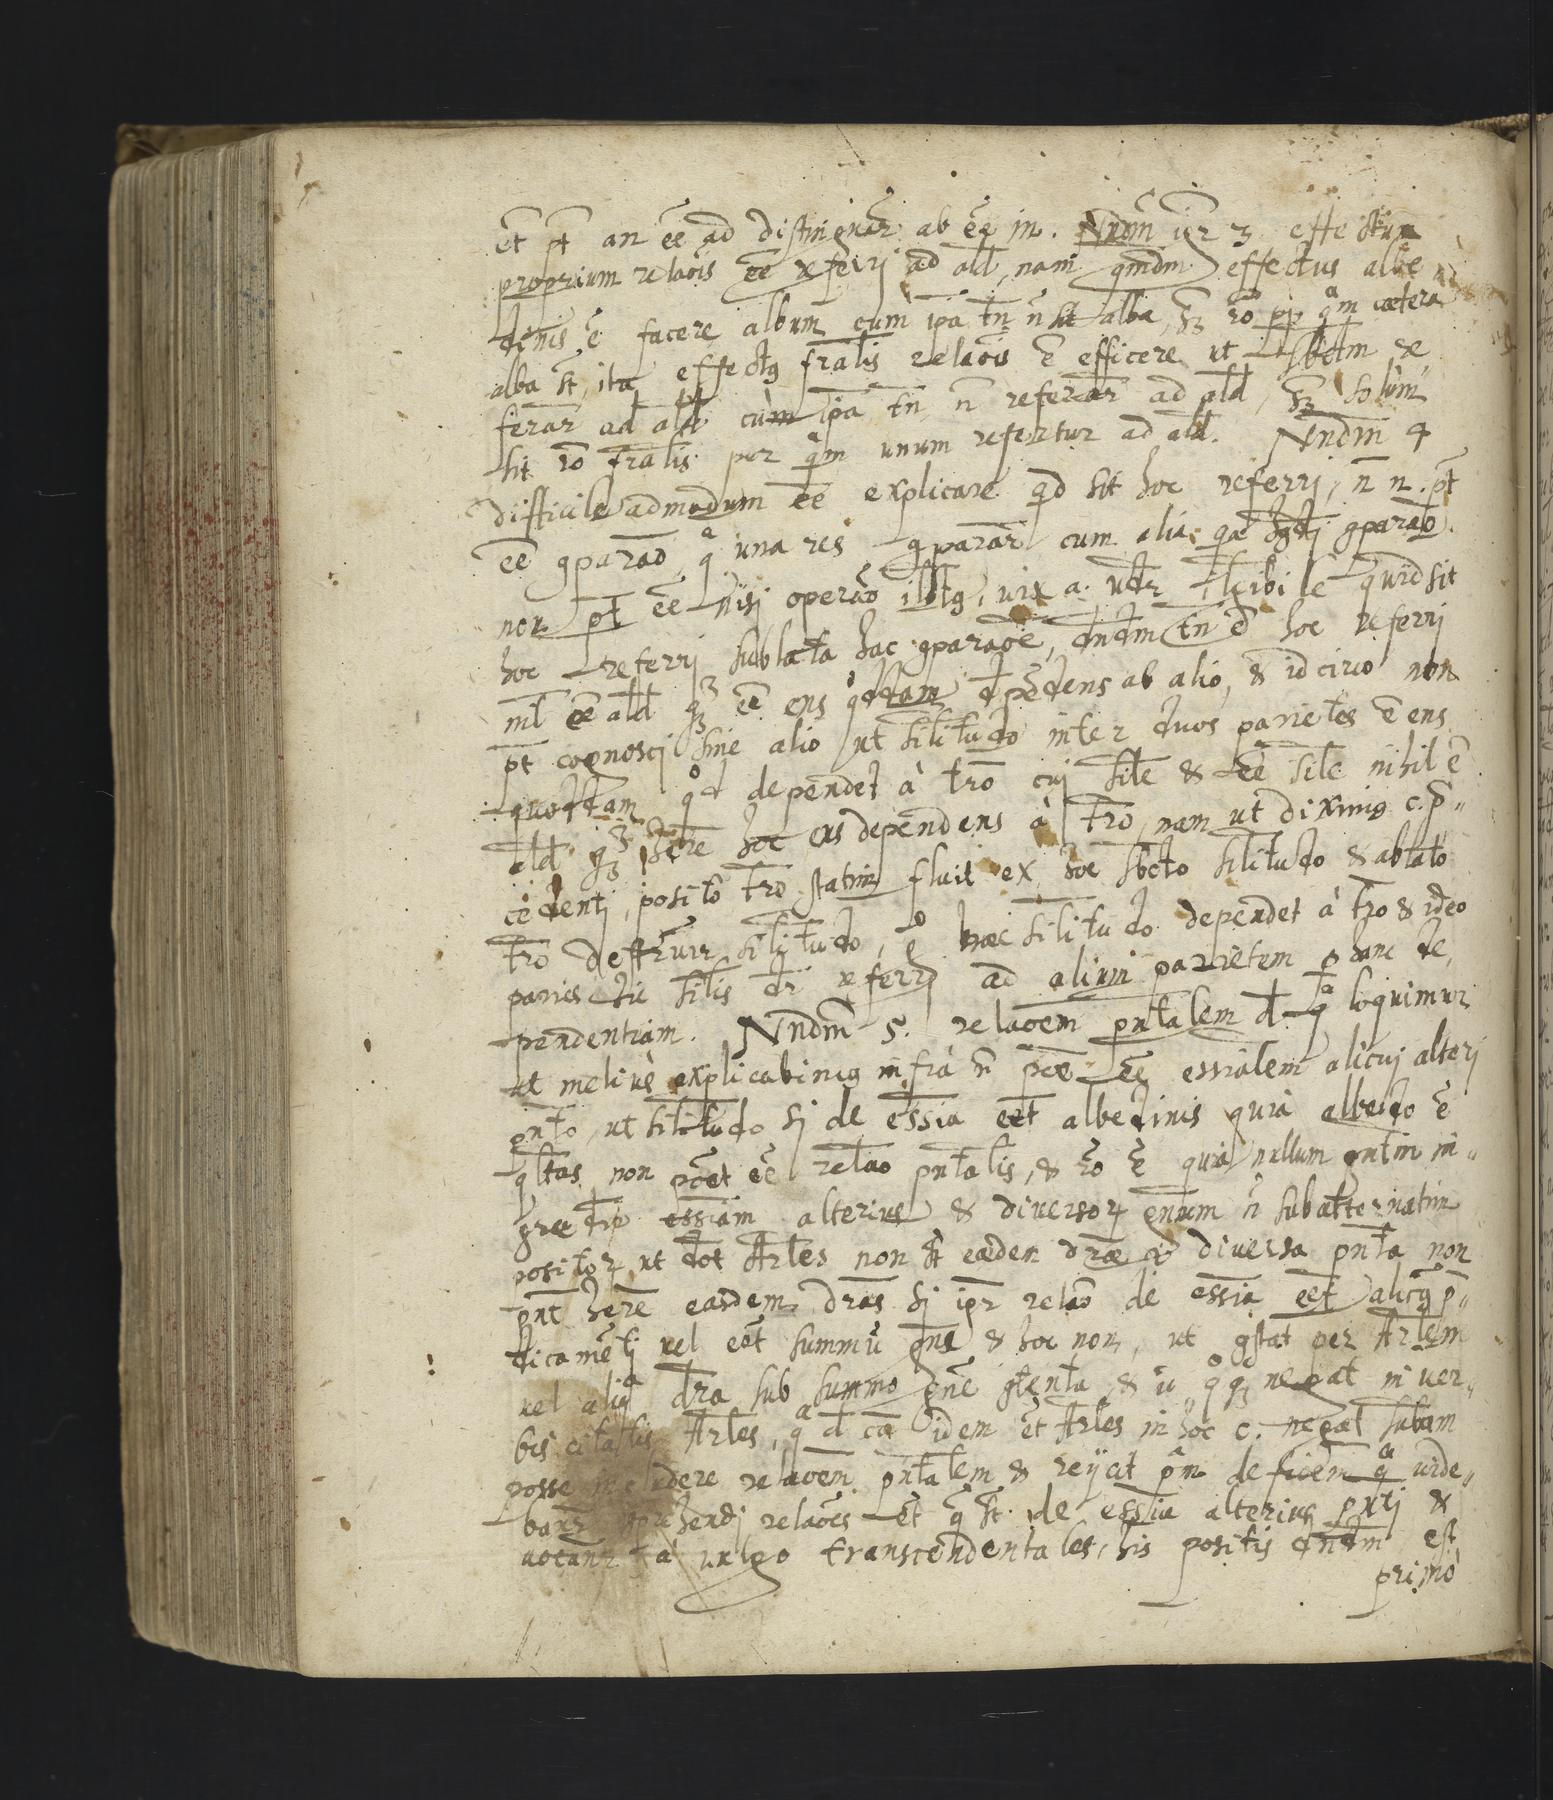 et pt an ee ad distinguar ab ee in. Nndm igr 3 effectum
proprium relaois ee referri ad ald, nam qmdm effectus albe
dinis e facere album cum ipa tn n sit alba, sz ro pp qm caetera
alba st, ita effectg fralis relaois e efficere ut sbctm re
ferar ad ald cùm ipa tn n referar ad ald, sz solùm
sit ro fralis per qm unum refertur ad ald. Nndm 4
difficile admodum ee explicare qd sit hoc referri, n n. pt
ee gparao, q una res gparar cum alia, gparao
non pt ee nisi operao, uix a. quid sit
hoc referri sublata hac gparaoe, dndm tn e hoc referri
nil ee ald qz ee ens qddam dpendens ab alio, & idcirco non
pt cognosci sine alio ut silitudo inter duos parietes e ens
quoddam qd dependet à tro cui sile & ee sile nihil e
ald qz here hoc ens dependens à tro, nam ut diximg c. p„
cedenti, posito tro statim fluit ex hoc sbcto silitudo & ablato
tro destruir silitudo, haec silitudo dependet à tro & ideo
paries hic silis dr referri ad alium parietem p hanc de„
pendentiam. Nndm 5. relaoem pntalem d qa loquimur
ut meliùs explicabimg infrà n poe ee essialem alicui alteri
pnto, ut silitudo si de essia eet albedinis quia albedo e
qltas non poet ee relao pntalis, & ro e quia nullum pntm in„
greditr essiam alterius & diversor gnum n subalternatim
positor, ut dot Arles non st eaedem drae & diversa pnta non
pnt here easdem dras si igr relao de essia eet alicg p„
dicameti vel eet summu gns & hoc non, ut gstat per Arlem
vel aliq dra sub summo gne gtenta, & u qqz negat in ver„
bis citatis Arles, q d ca idem et Arles in hoc c. negat subam
posse relaoem pntalem & reijcit pm deficem q vide„
banr relaoes et q st de essia alterius pnti &
uocanr à vulgo transcendentales, his positis dndm est
primò